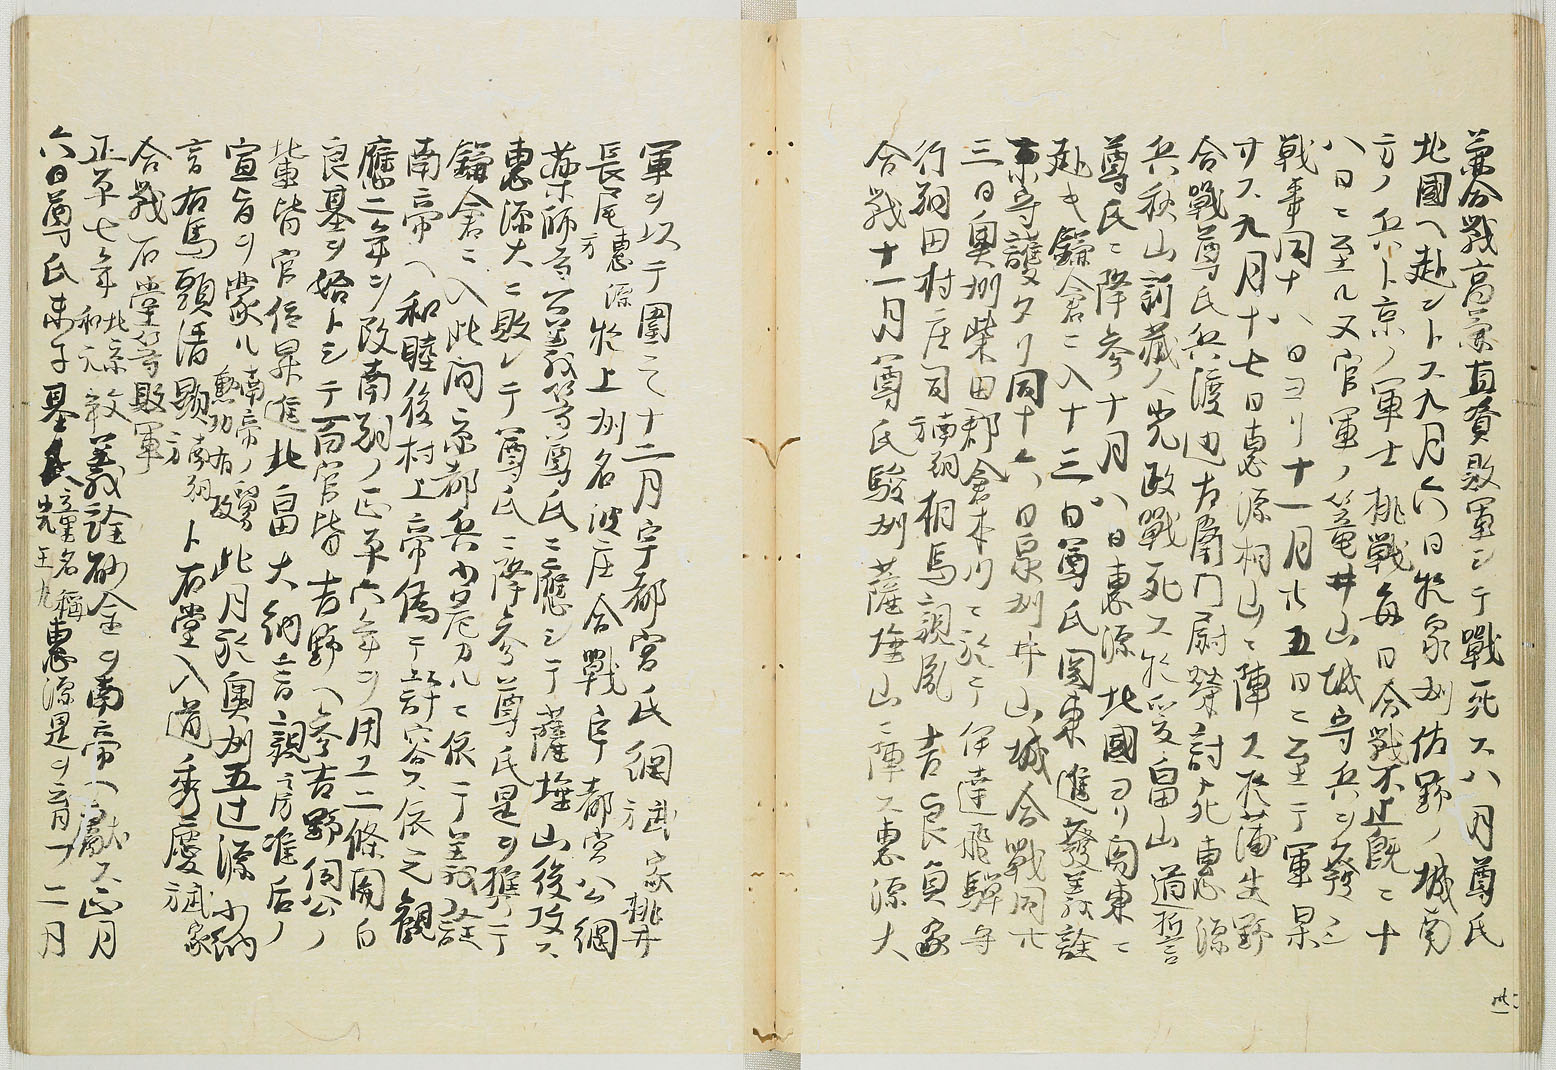 兼合戰高兼直資敗軍シテ戰死ス八月尊氏
北國ヘ赴ントス九月六日於泉州佐野ノ城南
方ノ兵ト京ノ軍士挑戰毎日合戰不止既ニ十
八日ニ至ル又官軍ノ篭井山城守兵ヲ發シ
戰事同十八日ヨリ十一月廿五日ニ至テ軍果
サス九月十七日惠源桐山ニ陣ス於蒲生野
合戰尊氏兵渡辺左衛門尉榮討死惠源
兵秋山新藏人光政戰死ス於是畠山道誓
尊氏ニ降參十月八日惠源北國ヨリ関東ニ
赴キ鎌倉ニ入十三日尊氏関東進發義詮
京守護タリ同十六日泉州井山城合戰同廿
三日奥州柴田郡倉本川ニ於テ伊達飛騨守
行朝田村庄司南朝方相馬親胤吉良貞家
合戰十一月尊氏駿州薩埵山ニ陣ス惠源大
軍ヲ以テ圍之十二月宇都宮氏綱武家方挑井
長尾惠源方於上州名波庄合戰宇都宮公綱
藥師寺公義等尊氏ニ應シテ薩埵山後攻ス
惠源大ニ敗レテ尊氏ニ降參尊氏是ヲ獲テ
鎌倉ニ入此間京都兵少尼力ルニ依テ義詮
南帝ヘ和睦後村上帝偽テ許容ス依之觀
應二年ヲ改南朝ノ正平六年ヲ用ユ二條関白
良基ヲ始トシテ百官皆吉野ヘ參吉野伺公ノ
輩皆官位昇進北畠大納言親房准后ノ
宣旨ヲ蒙ル南帝ノ舅勲功有故此月於奥州五辻源少納
言右馬頭清顕南朝方ト石堂入道秀慶武家
合戰石堂等敗軍
正平七年北京和元年義詮砂金ヲ南帝ヘ獻ス正月
六日尊氏末子基氏童名稱光王丸惠源是ヲ育フ二月